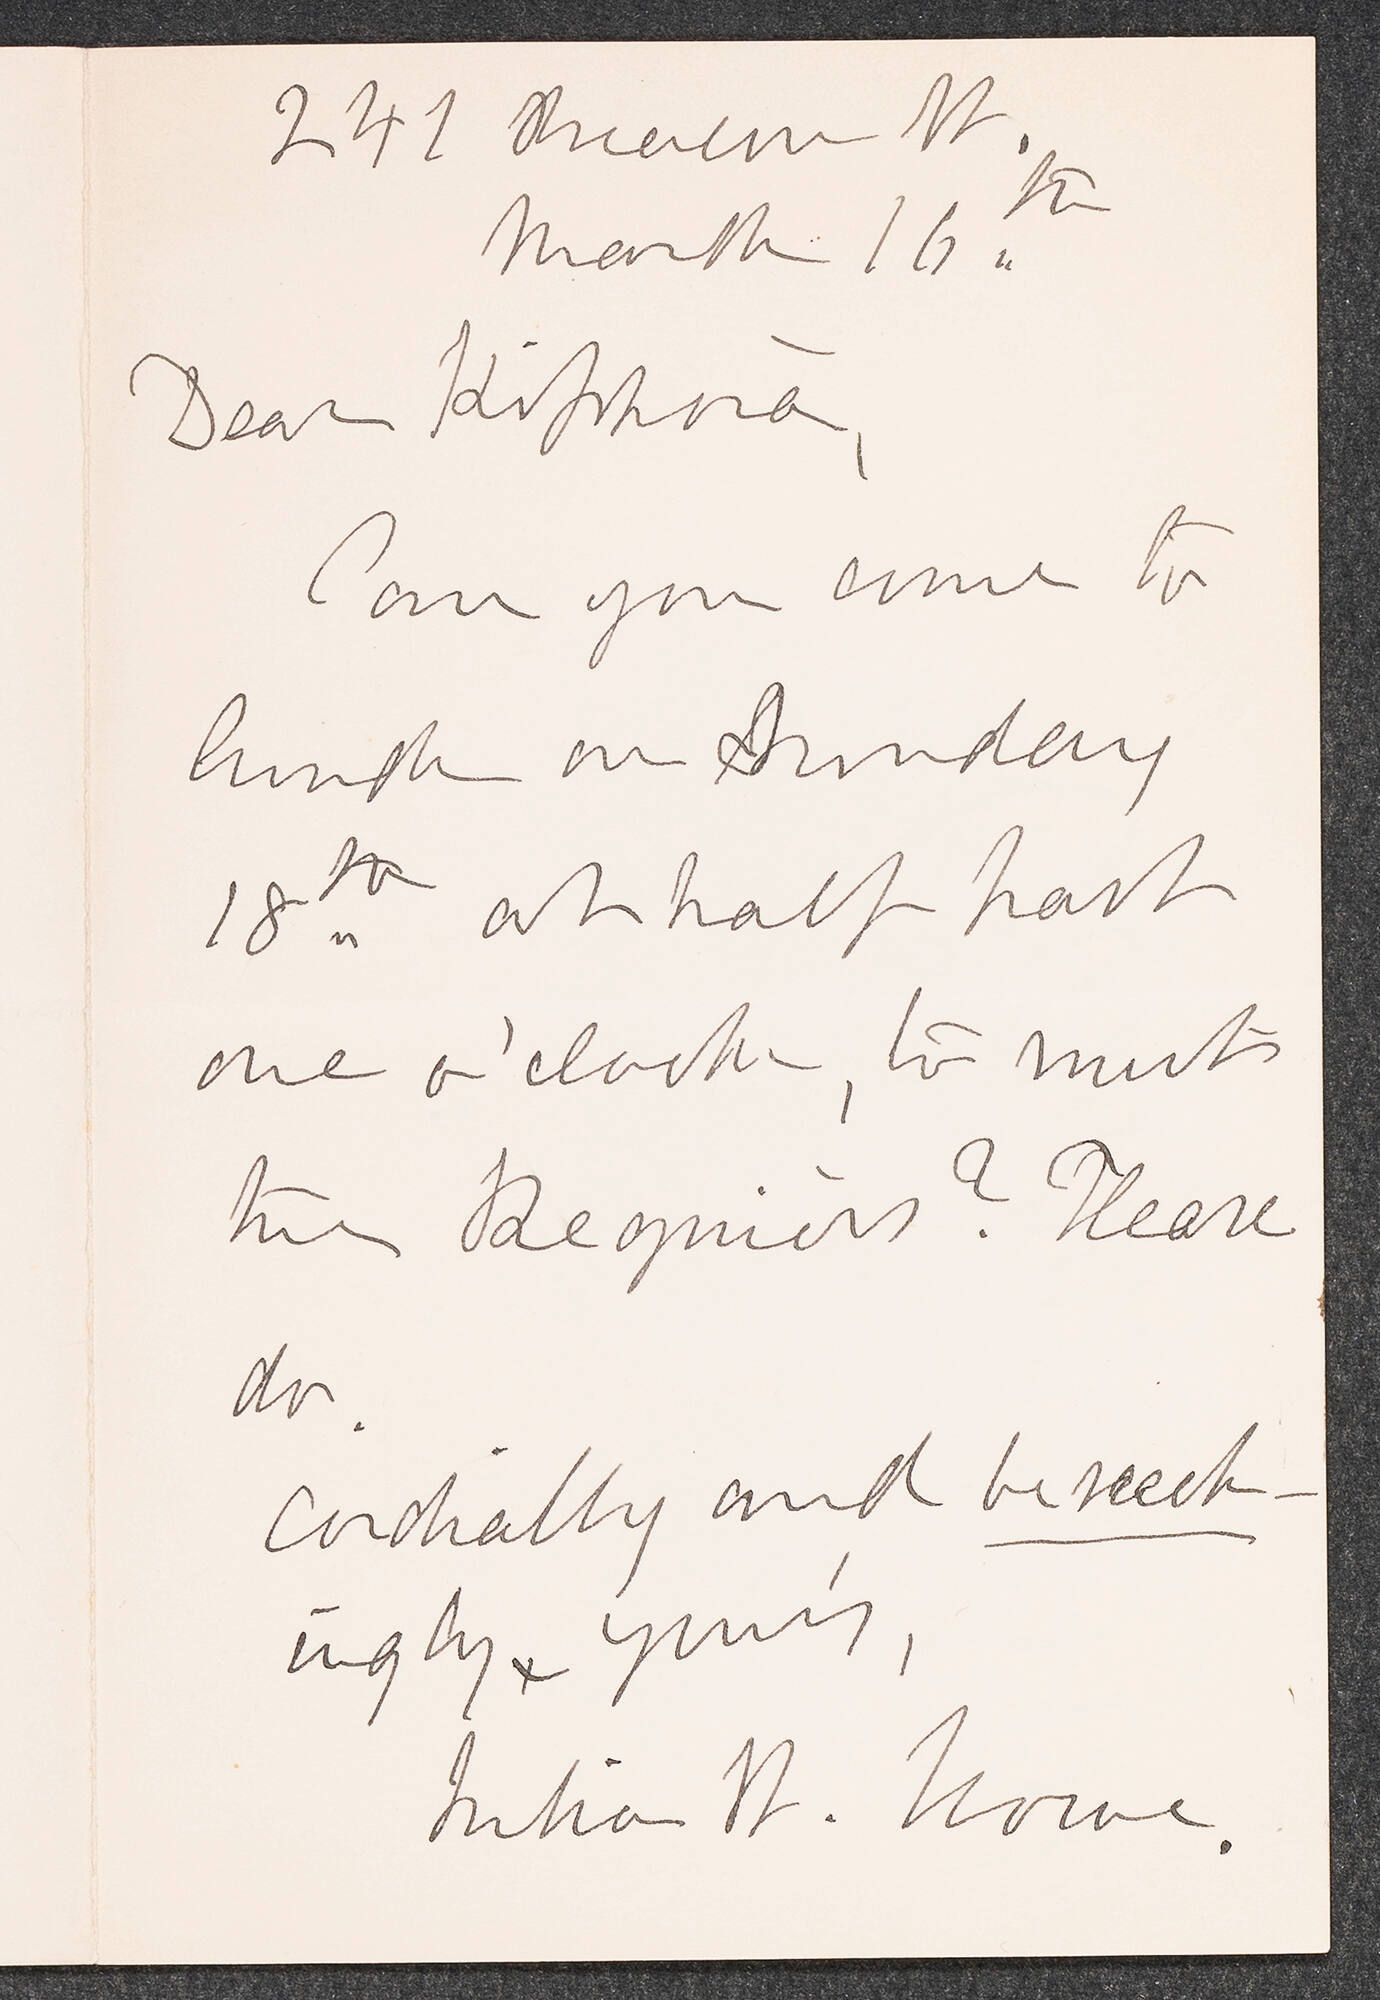 241 Beacon St.
March 16th
Dear
Can you come to
lunch on Sunday
18th at half past
one o'clock, to meet
the Regniers? Please
do.
cordially and beseech-
ingly yours,
Julia W. Howe.